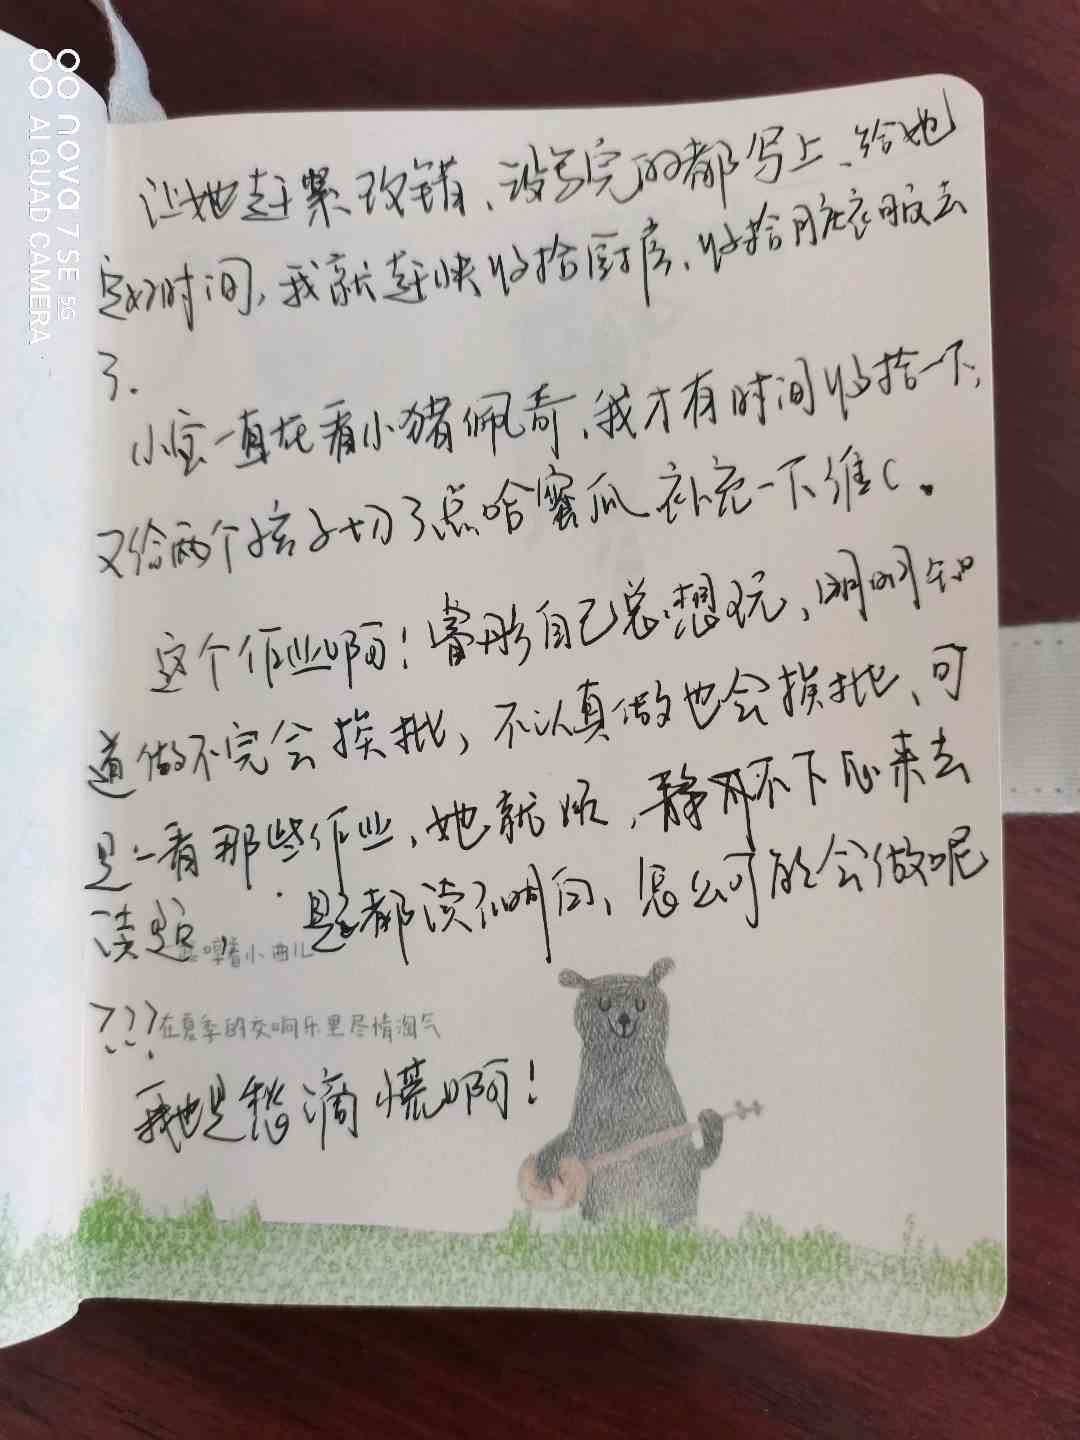 让她赶紧改错、没写完的都写上、给她
定好时间,我就赶快收拾厨房、收拾脏衣服去
了.
小宝一直在看小猪佩奇、我才有时间收拾一下,
又给两个孩子切了点哈蜜瓜补充一下维C。
这个作业啊!自己总想玩,明明知
道做不完会挨批,不认真做也会挨批、可
是一看那些作业,她就烦,静不下心来去
读题. 题都读不明白、怎么可能会做呢
哼着小曲儿
???
在夏季的交响乐里尽情淘气
我也是愁滴慌啊!
nova 7 SE 5G
AI QUAD CAMERA